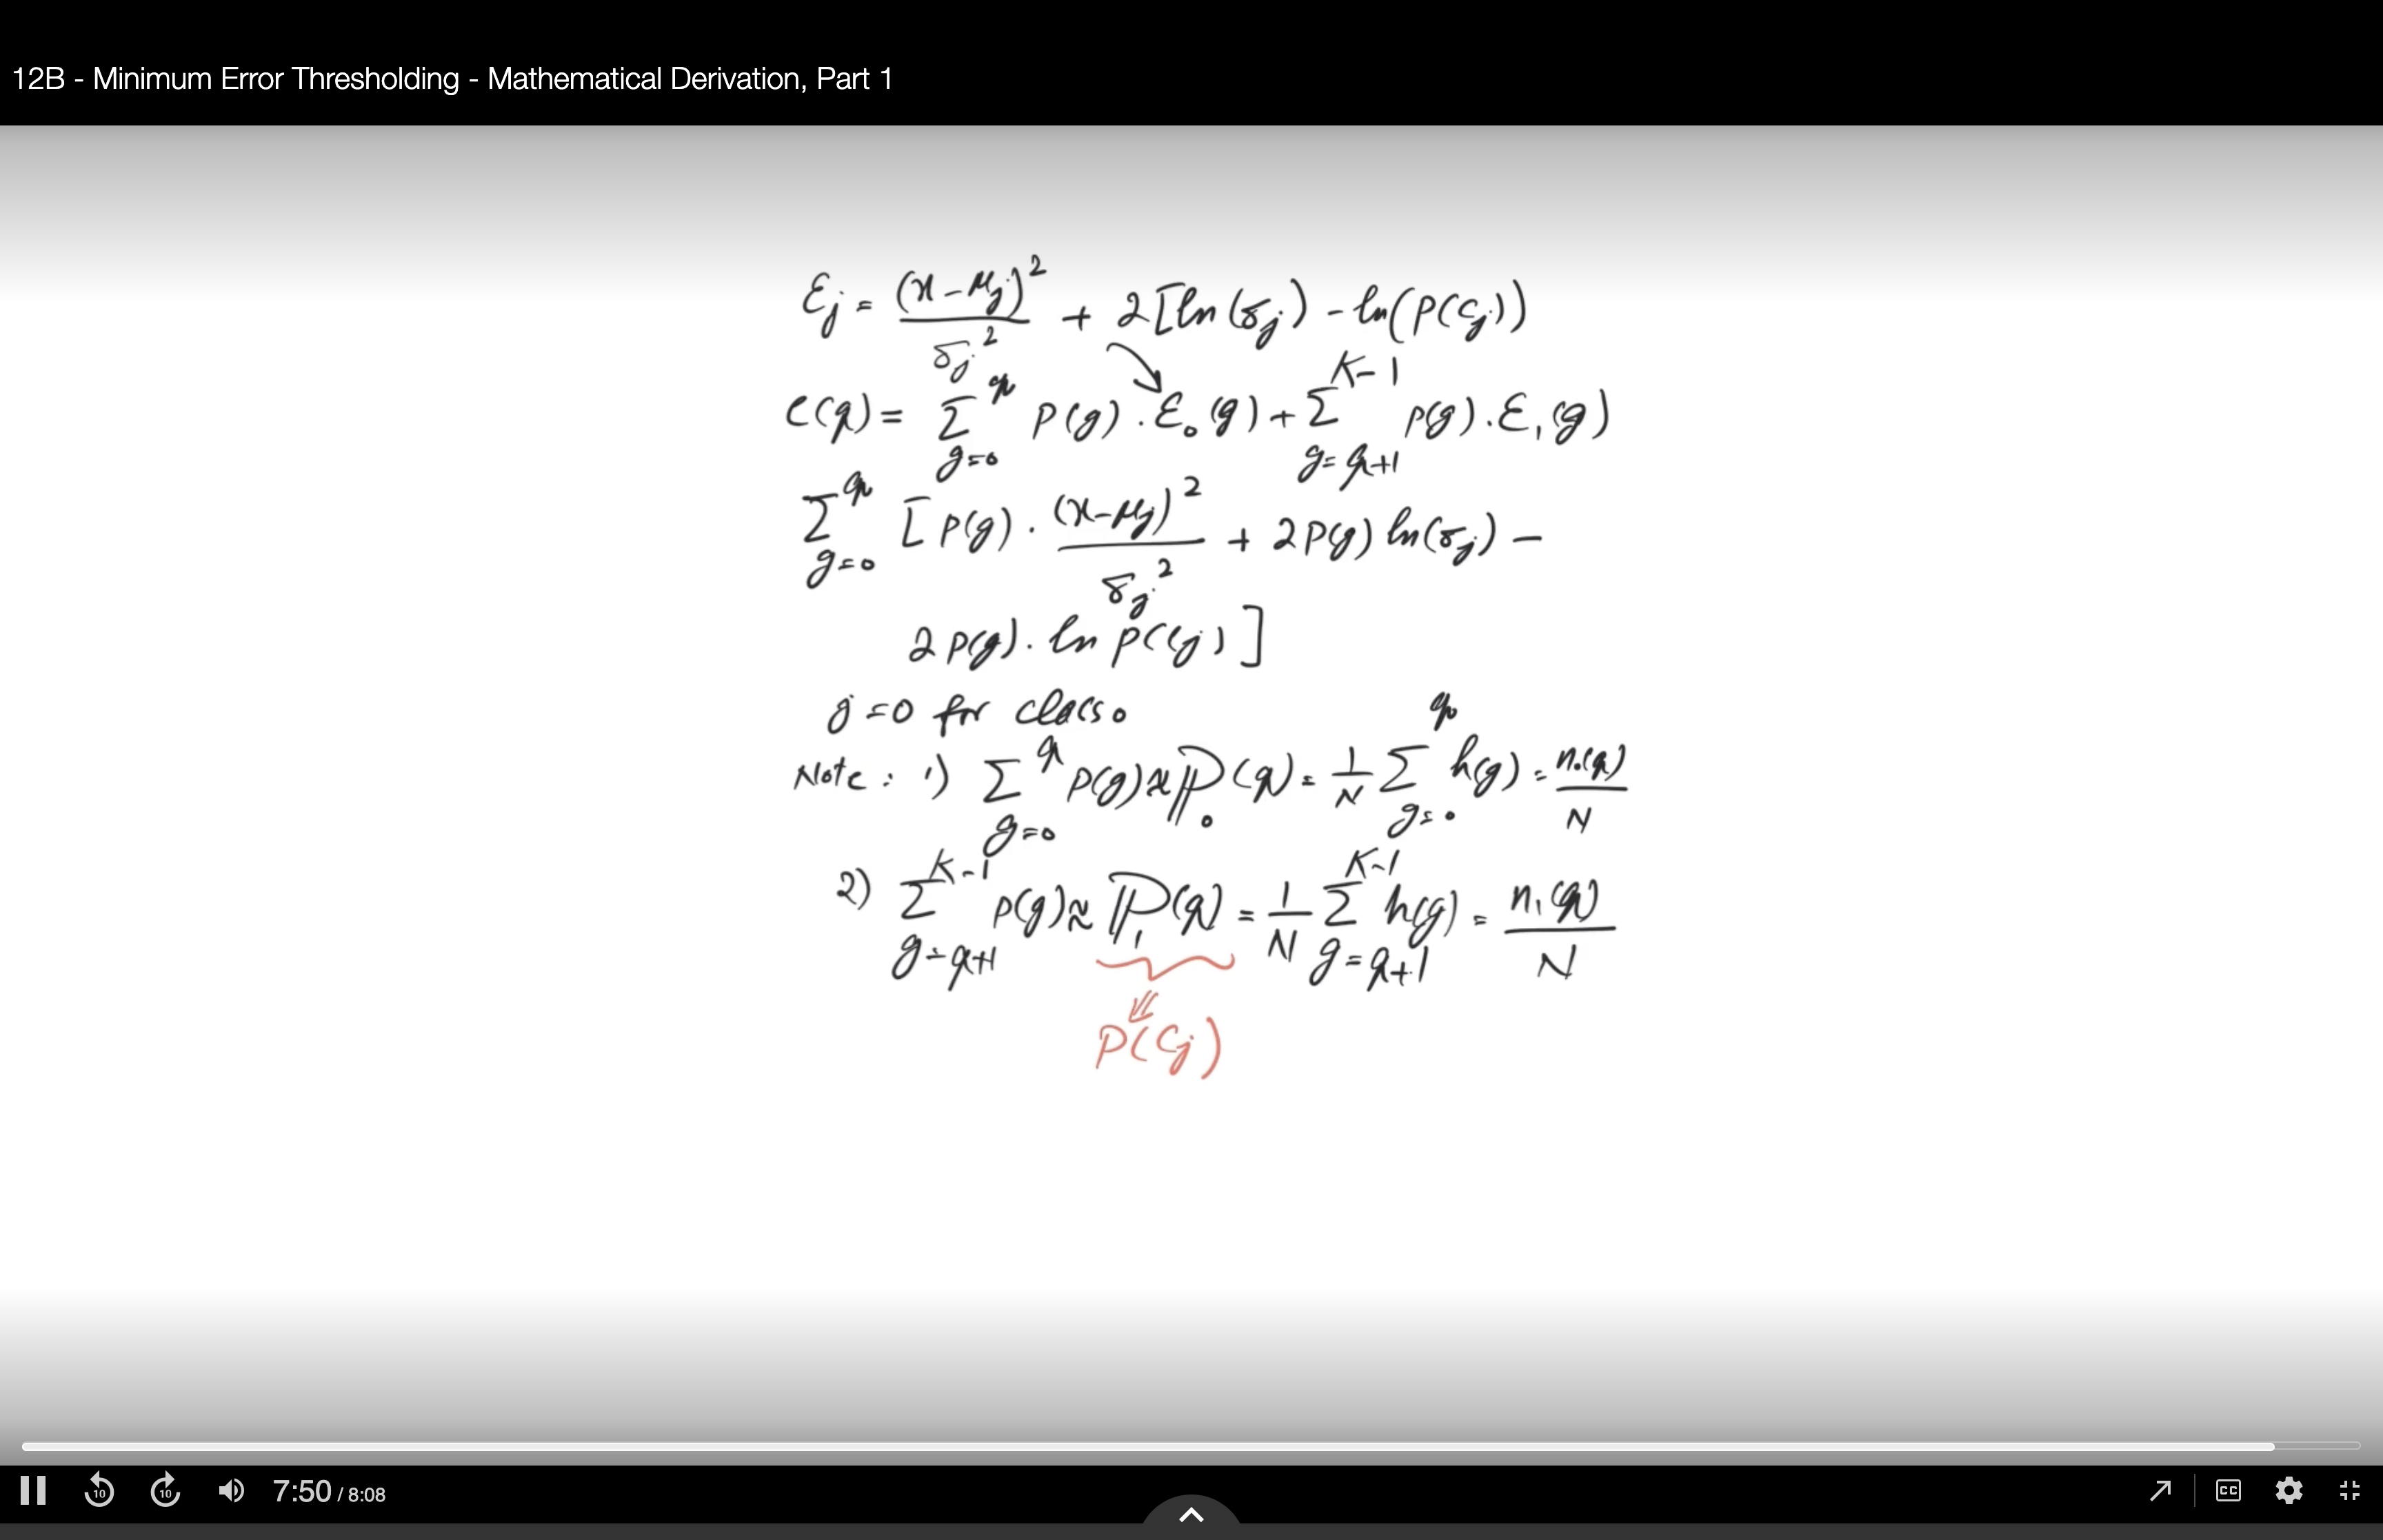 12B - Minimum Error Thresholding - Mathematical Derivation, Part 1
εj = (x-μj)² / σj² + 2[ln(σj) - ln(P(Cj))
e(q) = Σ_{g=0}^{q} P(g) · ε₀(g) + Σ_{g=q+1}^{K-1} p(g) · ε₁(g)
Σ_{g=0}^{q} [P(g) · (x-μj)² / σj² + 2P(g) ln(σj) -
2 P(g) · ln P(Cj)]
j=0 for class 0
Note: 1) Σ_{g=0}^{q} P(g) ≈ ℙ₀(q) = 1/N Σ_{g=0}^{q} h(g) = n₀(q)/N
2) Σ_{g=q+1}^{K-1} p(g) ≈ ℙ₁(q) = 1/N Σ_{g=q+1}^{K-1} h(g) = n₁(q)/N
⇓
P(Cj)
10
10
7:50 / 8:08
CC